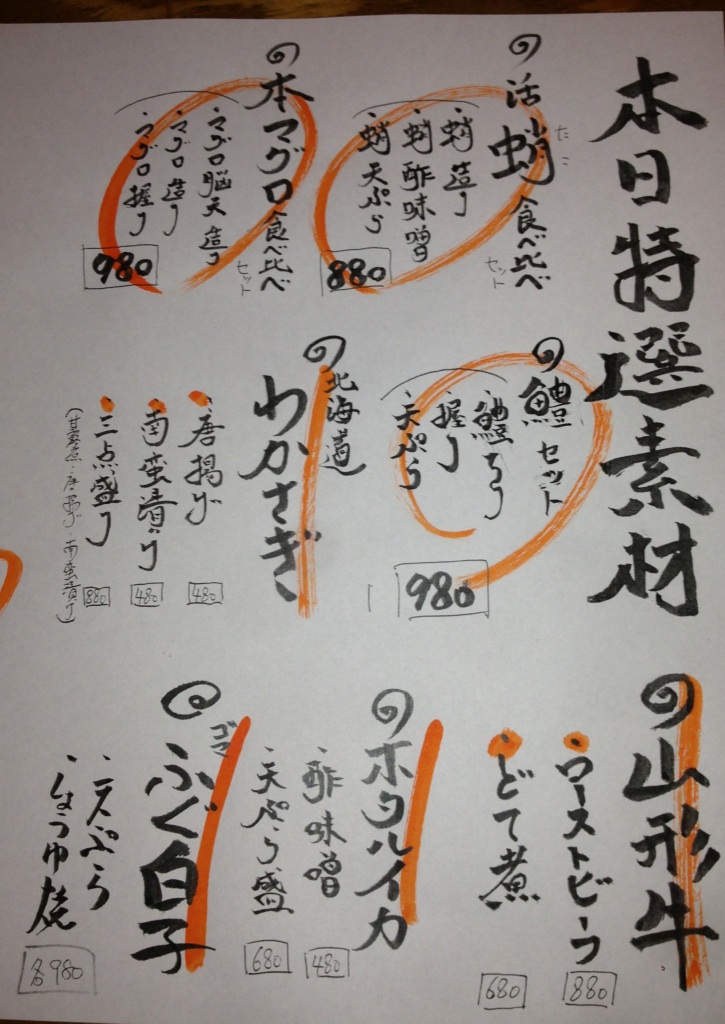 本日特選素材
活蛸食べ比べ
たこ
セット
蛸造り
蛸酢味噌
蛸天ぷら
880
本マグロ食べ比べ
セット
マグロ脳天造り
マグロ造り
マグロ握り
980
鱧セット
鱧ちり
握り
天ぷら
980
北海道
わかさぎ
唐揚げ
480
南蛮漬け
480
三点盛り
880
山形牛
ローストビーフ
880
どて煮
680
ホタルイカ
酢味噌
480
天ぷら盛
680
ゴマ
ふぐ白子
天ぷら
しょうゆ焼
各980